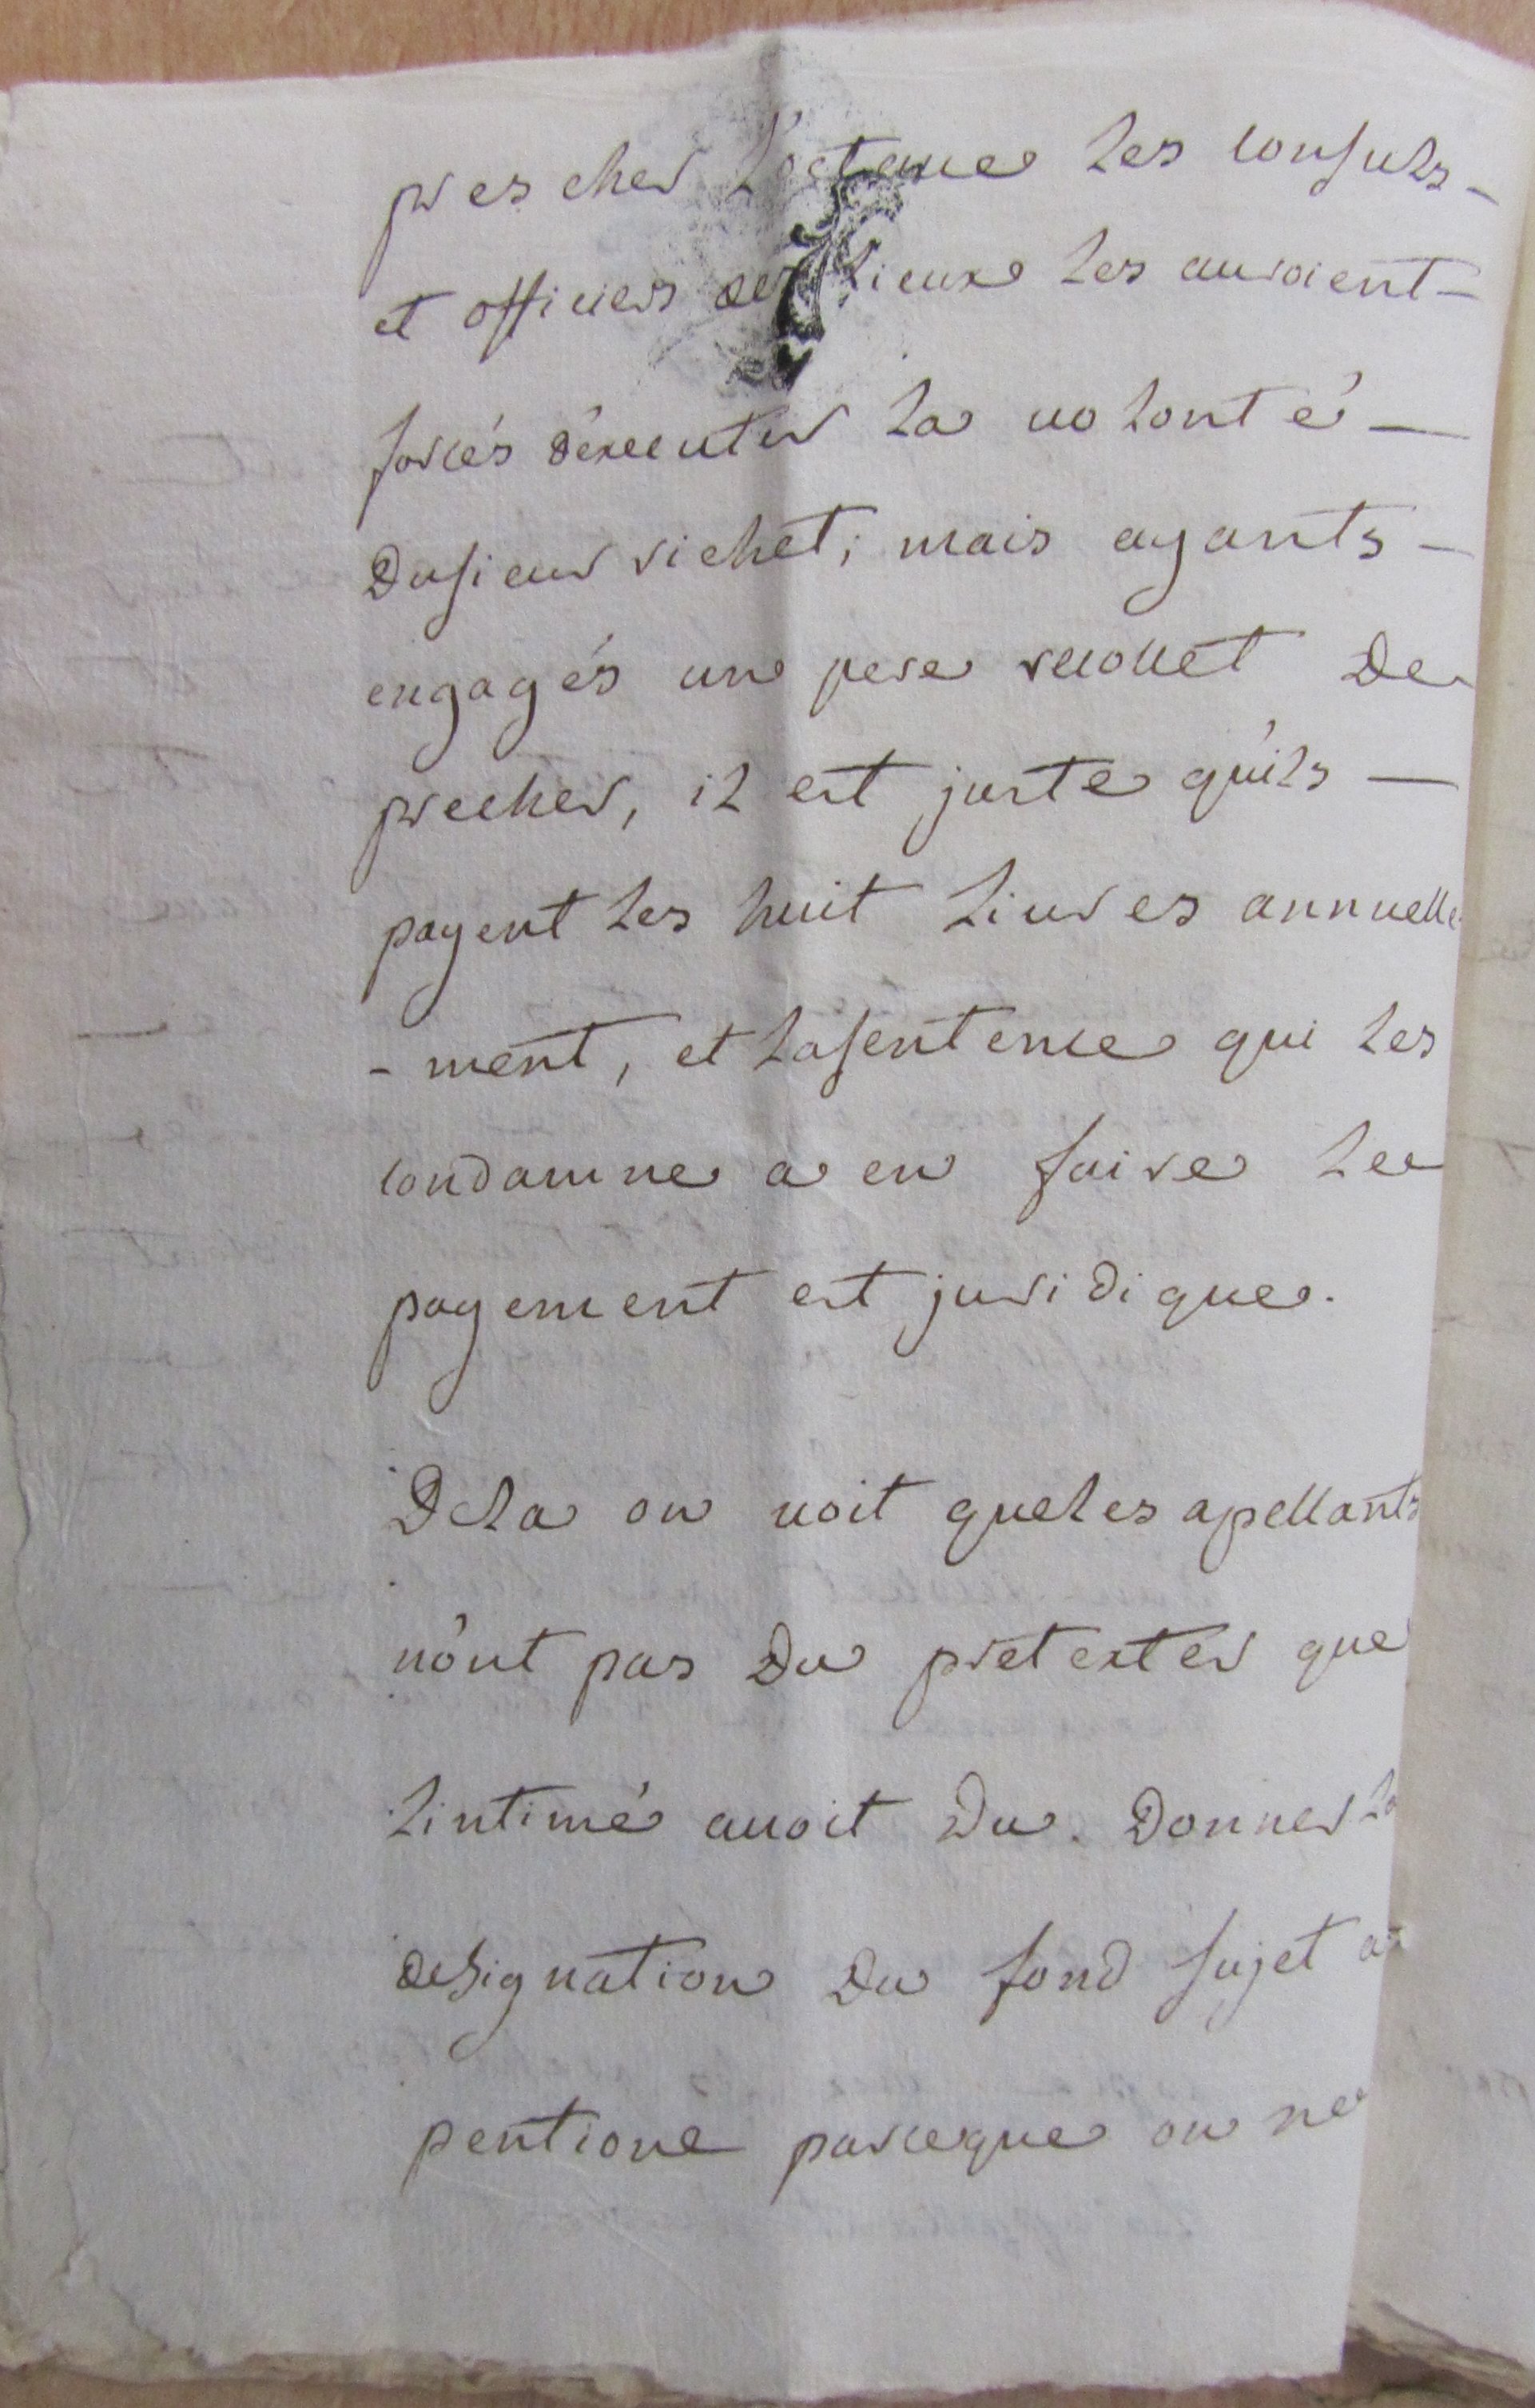 prescher l'octave les consuls -
et officiers des lieux les auroient -
forcés d'éxecuter la volonté -
Dusieur richet; mais ayants -
engagés un pere recollet De
precher, il est juste qu'ils -
payent les huit livres annuelle
- ment, et lasentence qui les
condamne a en faire le
payement est juridique.
Dela on voit queles apellants
n'ont pas Du pretexter que
Lintimé avoit Du Donner la
designation Du fond sujet a
pentione parceque on ne